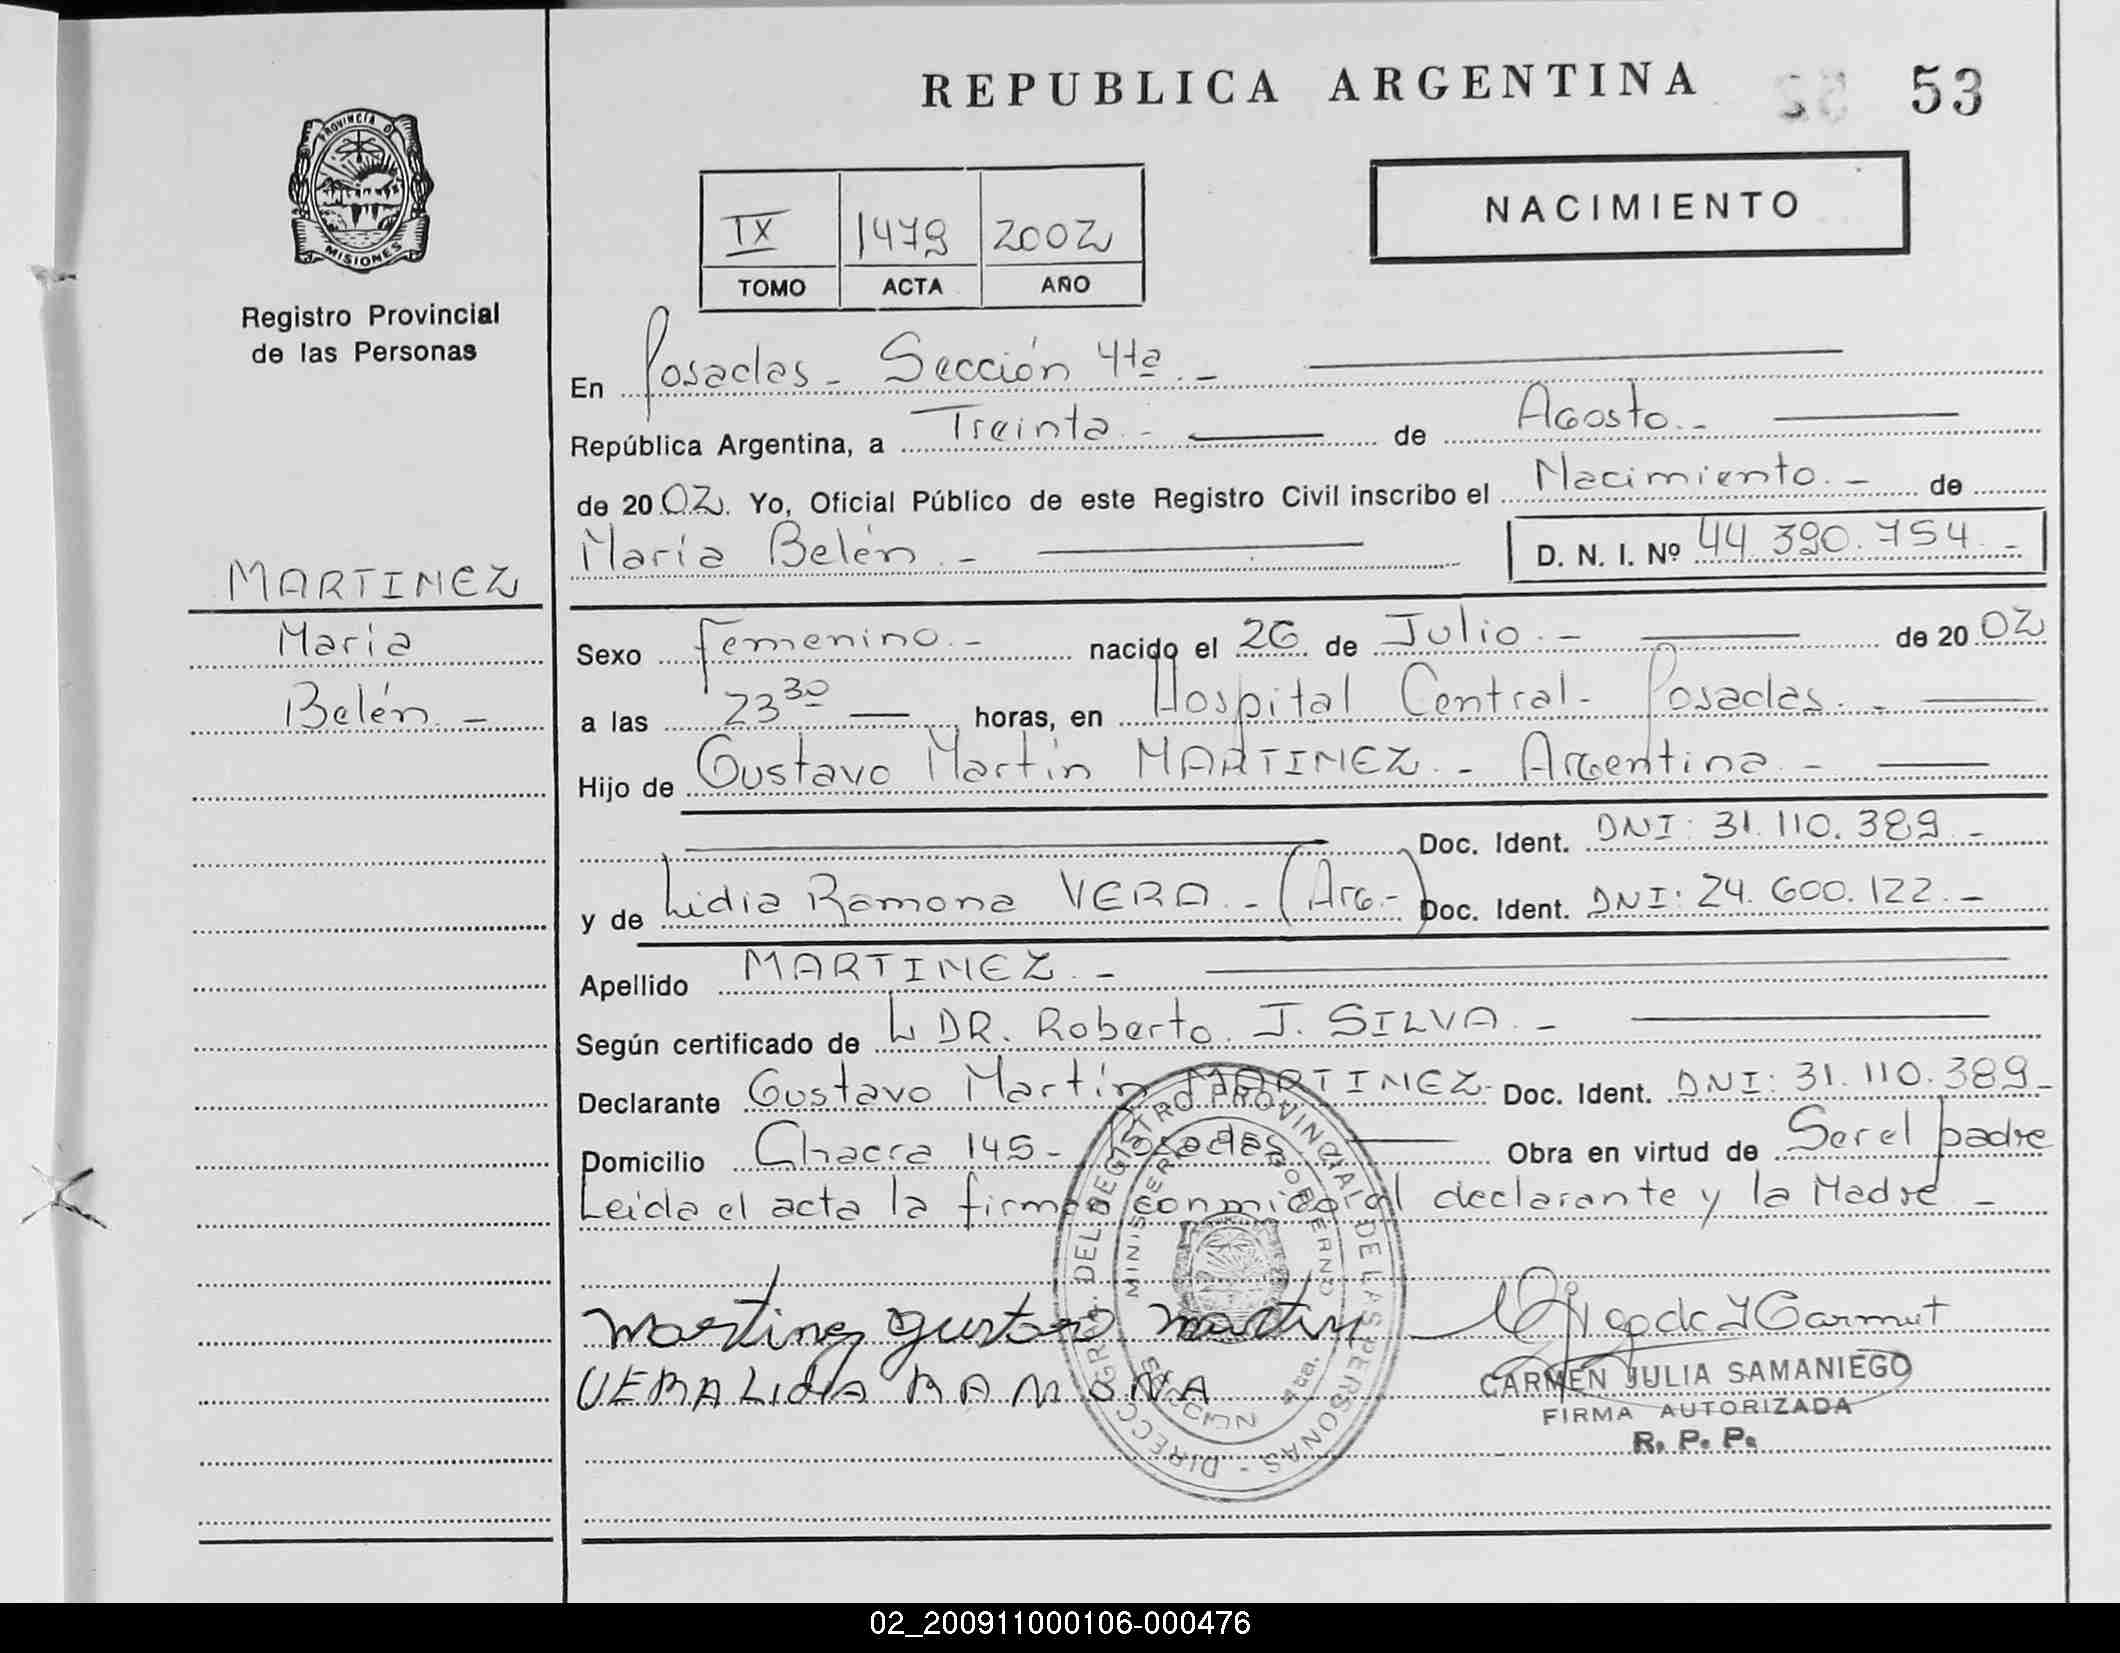 REPUBLICA ARGENTINA
53
PROVINCIA D
MISIONES
Registro Provincial
de las Personas
NACIMIENTO
IX 1479 2002
TOMO ACTA AÑO
En Posadas - Sección 4ta. -
República Argentina, a Treinta. - de Agosto. -
de 2002. Yo, Oficial Público de este Registro Civil inscribo el Nacimiento. - de
María Belén. - D. N. I. Nº 44.390.754. -
MARTINEZ
María
Belén. -
Sexo femenino. - nacido el 26 de Julio. - de 2002
a las 23 30 horas, en Hospital Central - Posadas. -
Hijo de Gustavo Martín MARTINEZ. - Argentina. -
Doc. Ident. DNI: 31.110.389. -
y de Lidia Ramona VERA. - (Arg. -) Doc. Ident. DNI: 24.600.122. -
Apellido MARTINEZ. -
Según certificado de DR. Roberto J. SILVA. -
Declarante Gustavo Martín MARTINEZ - Doc. Ident. DNI: 31.110.389 -
Domicilio Chacra 145 - Posadas Obra en virtud de Ser el padre
Leida el acta la firman conmigo el declarante y la Madre -
Martinez Gustavo Martin
VERA LIDIA RAMONA
CARMEN JULIA SAMANIEGO
FIRMA AUTORIZADA
R. P. P.
DIRECC. GRAL. DEL REGISTRO PROVINCIAL DE LAS PERSONAS -
MINISTERIO DE GOBIERNO
SECCION 4ta.
02_200911000106-000476